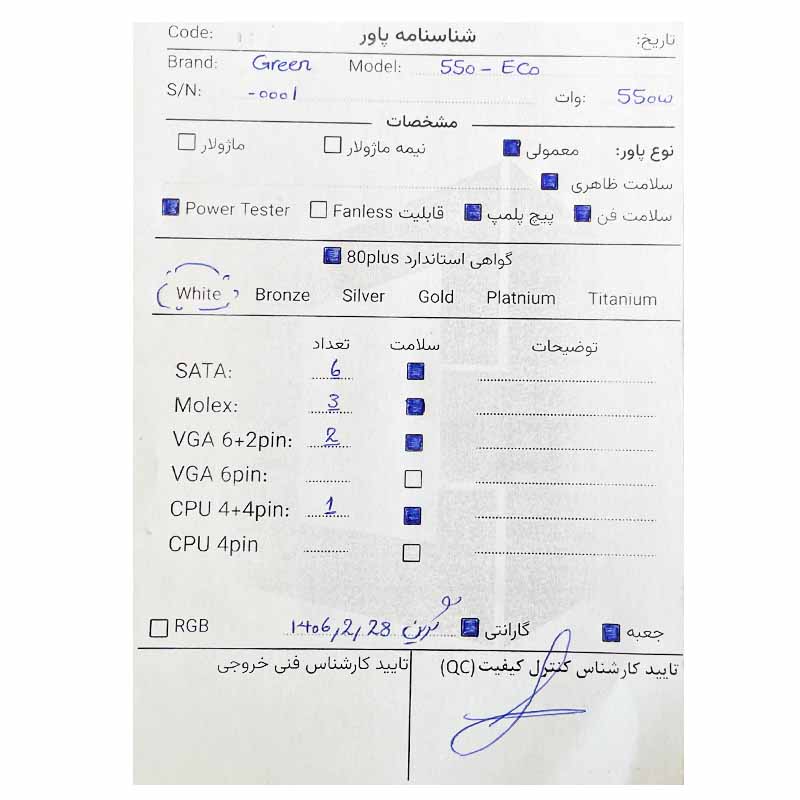 Code: شناسنامه پاور تاریخ:
Brand: Green Model: 550 - ECO
S/N: -0001 وات: 550w
مشخصات
نوع پاور: معمولی نیمه ماژولار ماژولار
سلامت ظاهری
سلامت فن پیچ پلمپ قابلیت Fanless Power Tester
گواهی استاندارد 80plus
White Bronze Silver Gold Platnium Titanium
تعداد سلامت توضیحات
SATA: 6
Molex: 3
VGA 6+2pin: 2
VGA 6pin:
CPU 4+4pin: 1
CPU 4pin
جعبه گارانتی گرین 1406,2,28 RGB
تایید کارشناس کنترل کیفیت (QC) تایید کارشناس فنی خروجی